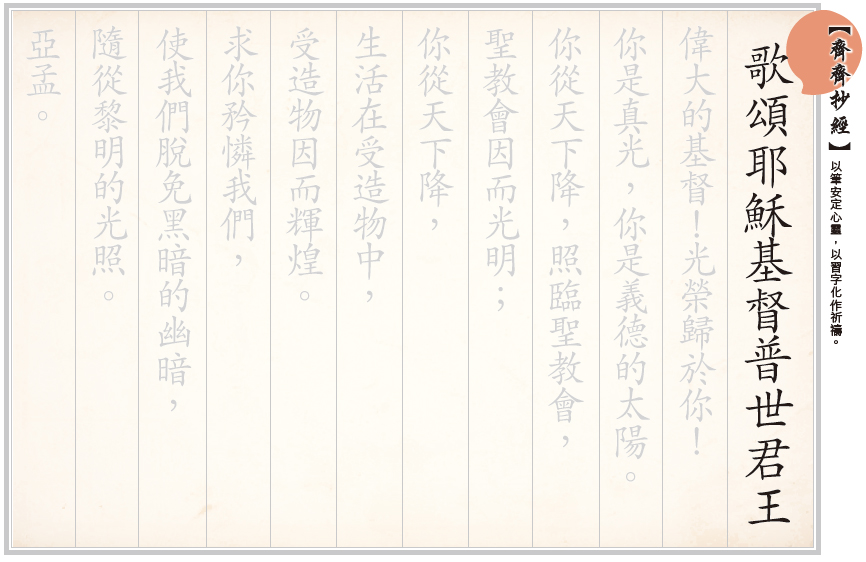 【齊齊抄經】以筆安定心靈，以習字化作祈禱。
歌頌耶穌基督普世君王
偉大的基督！光榮歸於你！
你是真光，你是義德的太陽。
你從天下降，照臨聖教會，
聖教會因而光明；
你從天下降，
生活在受造物中，
受造物因而輝煌。
求你矜憐我們，
使我們脫免黑暗的幽暗，
隨從黎明的光照。
亞孟。